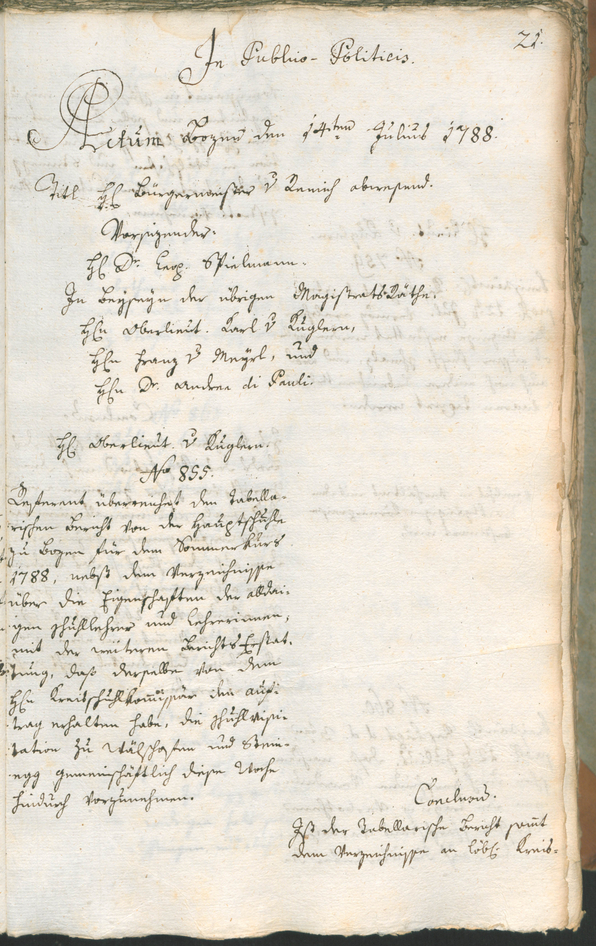 21.
In Publico-Politicis.
Actum Bozen den 14ten Julius 1788.
Titl. H: Bürgermeister v Remich abwesend.
Vorsizender.
H: Dr. Leop. Spielmann.
In Beyseyn der übrigen MagistratsRäthe.
H:n Oberlieut. Karl v Kuglern,
H:n Franz v Mayrl, und
H:n Dr. Andrea di Pauli.
H: Oberlieut. v Kuglern.
No 855.
Referent überreichet den Tabella-
rischen Bericht von der Hauptschuhle
zu Bozen für dem Sommerkurs
1788, nebst dem Verzeichnisse
über die Eigenschaften der alldai-
gen Schullehrer und Lehrerinnen,
mit der weiteren Berichts Erstat-
tung, daß derselbe von dem
H:n Kreisschuhlkommissär den auf-
trag erhalten habe, die Schuhlvisi-
tation zu Wälschofen und Stein-
egg gemeinschäftlich diese Woche
hindurch vorzunehmen.
Conclusum.
Ist der Tabellarische Bericht sammt
dem Verzeichnisse an löbl: Kreis-